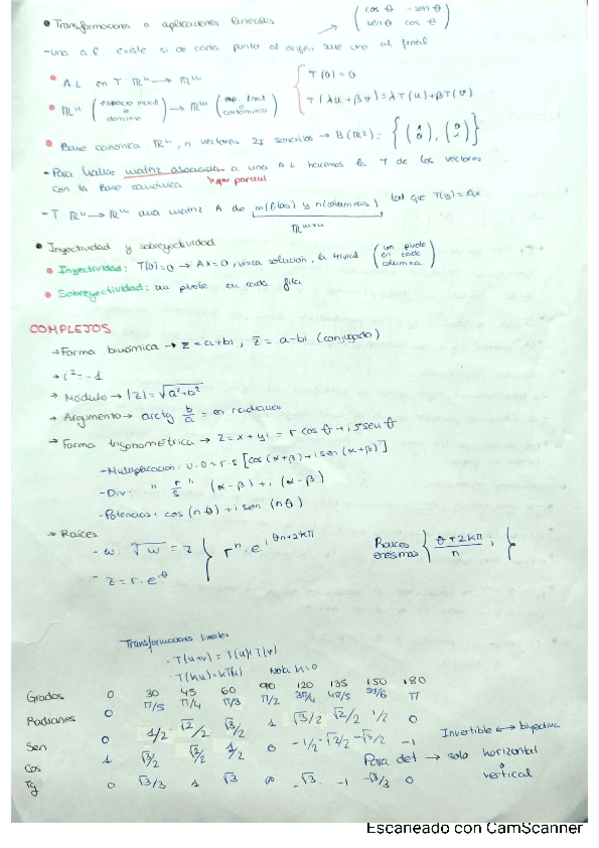 • Transformaciones o aplicaciones lineales (cos θ -sen θ
sen θ cos θ)
- una a.l. existe si de cada punto al origen sale uno al final
• A L en T: ℝⁿ → ℝᵐ { T(0) = 0
T(λu + βv) = λT(u) + βT(v)
• ℝⁿ (espacio inicial o dominio) → ℝᵐ (esp. final o codominio)
• Base canónica ℝⁿ, n vectores sencillos → B(ℝ²) = { }
- Para hallar matriz asociada a una AL hacemos la T de los vectores
con la Base canónica
- T: ℝⁿ → ℝᵐ una matriz A de m(filas) y n(columnas) tal que T(y) = Ax
ℝᵐˣⁿ
• Inyectividad y sobreyectividad
• Inyectividad: T(0) = 0 → Ax = 0, única solución, la trivial (un pivote en cada columna)
• Sobreyectividad: un pivote en cada fila
COMPLEJOS
→ Forma binómica → z = a+bi, z̄ = a-bi (conjugado)
→ i² = -1
→ Módulo → |z| = √a²+b²
→ Argumento → arctg b/a = en radianes
→ Forma trigonométrica → z = x + yi = r cos θ + i sen θ
- Multiplicación: u·v = r·s [cos (α+β) + i sen (α+β)]
- Div: " r/s " (α-β) + i (α-β)
- Potencias: cos (nθ) + i sen (nθ)
→ Raíces
- w: ⁿ√w = z } rⁿ · e^i θn+2kπ
Raíces enésimas { θ+2kπ/n ; {
- z = r·e^iθ
Transformaciones lineales
· T(u+v) = T(u)+T(v)
· T(ku) = kT(u) Nota k=0
Grados 0 30 45 60 90 120 135 150 180
Radianes 0 π/5 π/4 π/3 π/2 3π/4 4π/5 5π/6 π
Sen 0 1/2 √2/2 √3/2 1 √3/2 √2/2 1/2 0
Cos 1 √3/2 √2/2 1/2 0 -1/2 -√2/2 -√3/2 -1
Tg 0 √3/3 1 √3 ∞ -√3 -1 -√3/3 0
Invertible ↔ biyectiva
Para det → solo horizontal
o
vertical
Escaneado con CamScanner